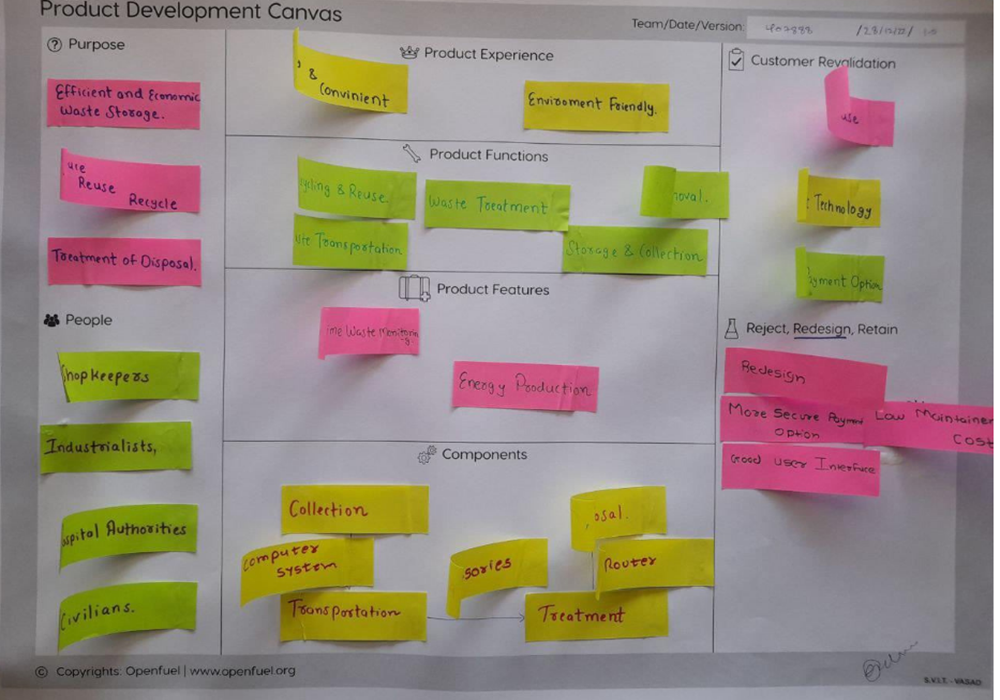 Product Development Canvas
Team/Date/Version:
Purpose
Efficient and Economic
Waste Storage.
ure
Reuse
Recycle
Treatment of Disposal.
People
Shopkeepers
Industrialists,
ospital Authorities
Civilians.
Product Experience
&
Convinient
Enviroment Friendly.
Product Functions
ycling & Reuse
Waste Treatment
oval.
Transportation
Storage & Collection
Product Features
ime Waste Monitoring
Energy Production
Components
Collection
osal.
Computer
System
sories
Router
Transportation
Treatment
Customer Revalidation
use
Technology
yment Option
Reject, Redesign, Retain
Redesign
More Secure Payment
Option
Low Maintainen
Cost
Good User Interface
© Copyrights: Openfuel | www.openfuel.org
S.V.I.T. - VASAD